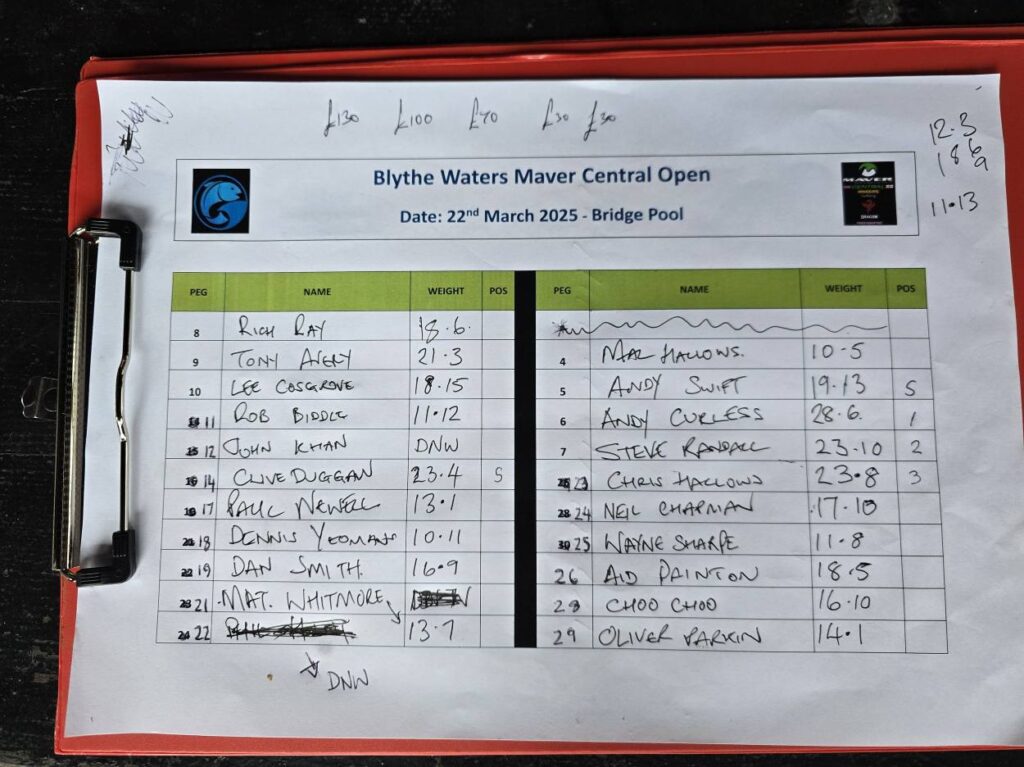 £130 £100 £70 £30 £30
12.3
18 6
9
11.13
Blythe Waters Maver Central Open
Date: 22nd March 2025 - Bridge Pool
MAVER
PEG NAME WEIGHT POS
8 RICH RAY 18.6.
9 TONY AVERY 21.3
10 LEE COSGROVE 18.15
11 ROB BIDDLE 11.12
12 JOHN KHAN DNW
14 CLIVE DUGGAN 23.4 5
17 PAUL NEWELL 13.1
18 DENNIS YEOMANS 10.11
19 DAN SMITH. 16.9
21 MAT. WHITMORE
22 13.7
DNW
PEG NAME WEIGHT POS
4 MAL HALLOWS. 10.5
5 ANDY SWIFT 19.13 5
6 ANDY CURLESS 28.6. 1
7 STEVE RANDALL 23.10 2
23 CHRIS HALLOWS 23.8 3
24 NEIL CHAPMAN 17.10
25 WAYNE SHARPE 11.8
26 AID PAINTON 18.5
CHOO CHOO 16.10
29 OLIVER PARKIN 14.1